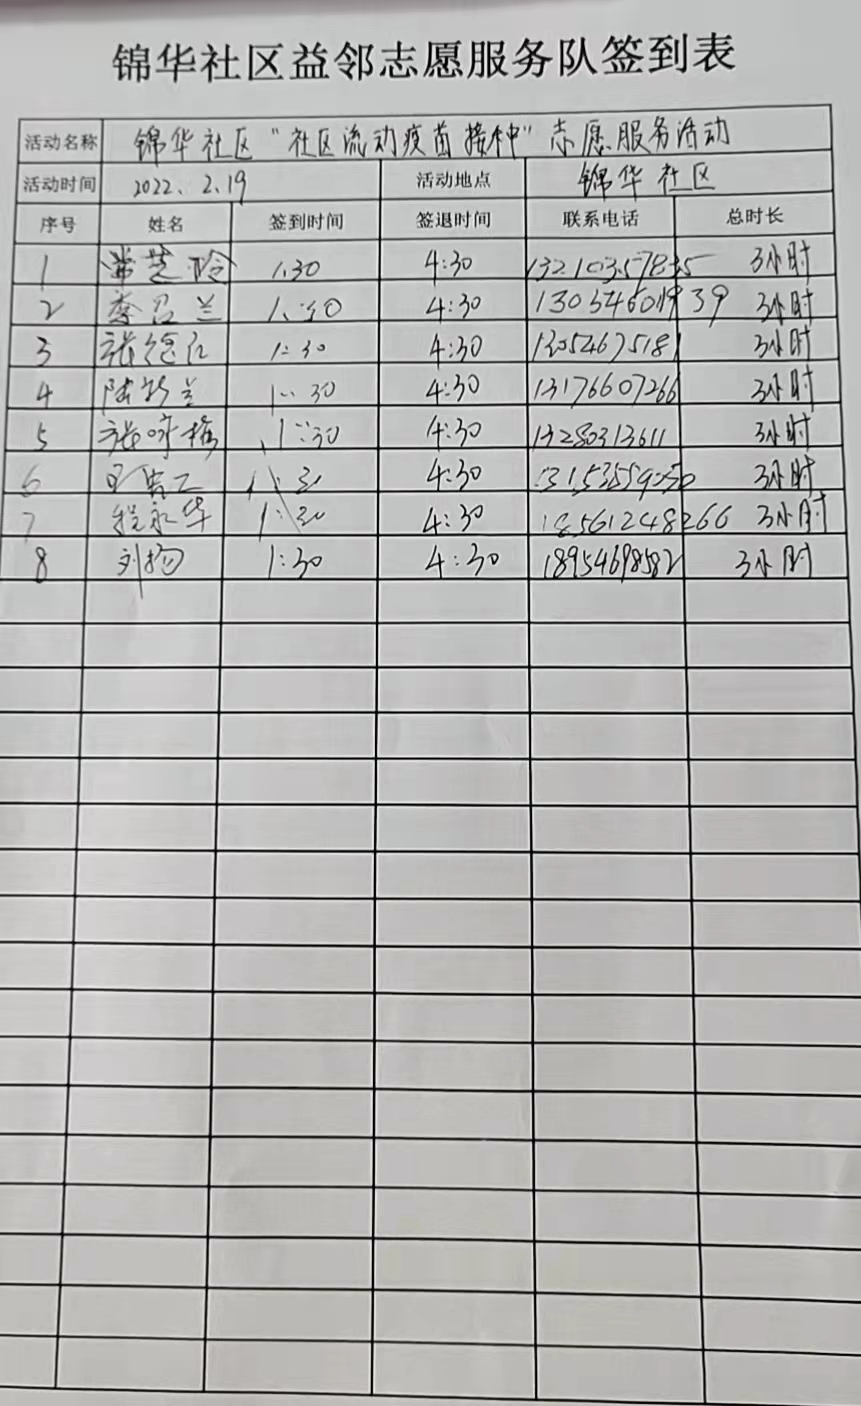 锦华社区益邻志愿服务队签到表
活动名称 锦华社区"社区流动疫苗接种"志愿服务活动
活动时间 2022、2、19 活动地点 锦华社区
序号 姓名 签到时间 签退时间 联系电话 总时长
1 1:30 4:30 3小时
2 李召兰 1:30 4:30 3小时
3 1:30 4:30 13054675181 3小时
4 1:30 4:30 13176607266 3小时
5 张咏梅 1:30 4:30 13280313611 3小时
6 1:30 4:30 3小时
7 程永华 1:30 4:30 18561248266 3小时
8 刘杨 1:30 4:30 18954698582 3小时